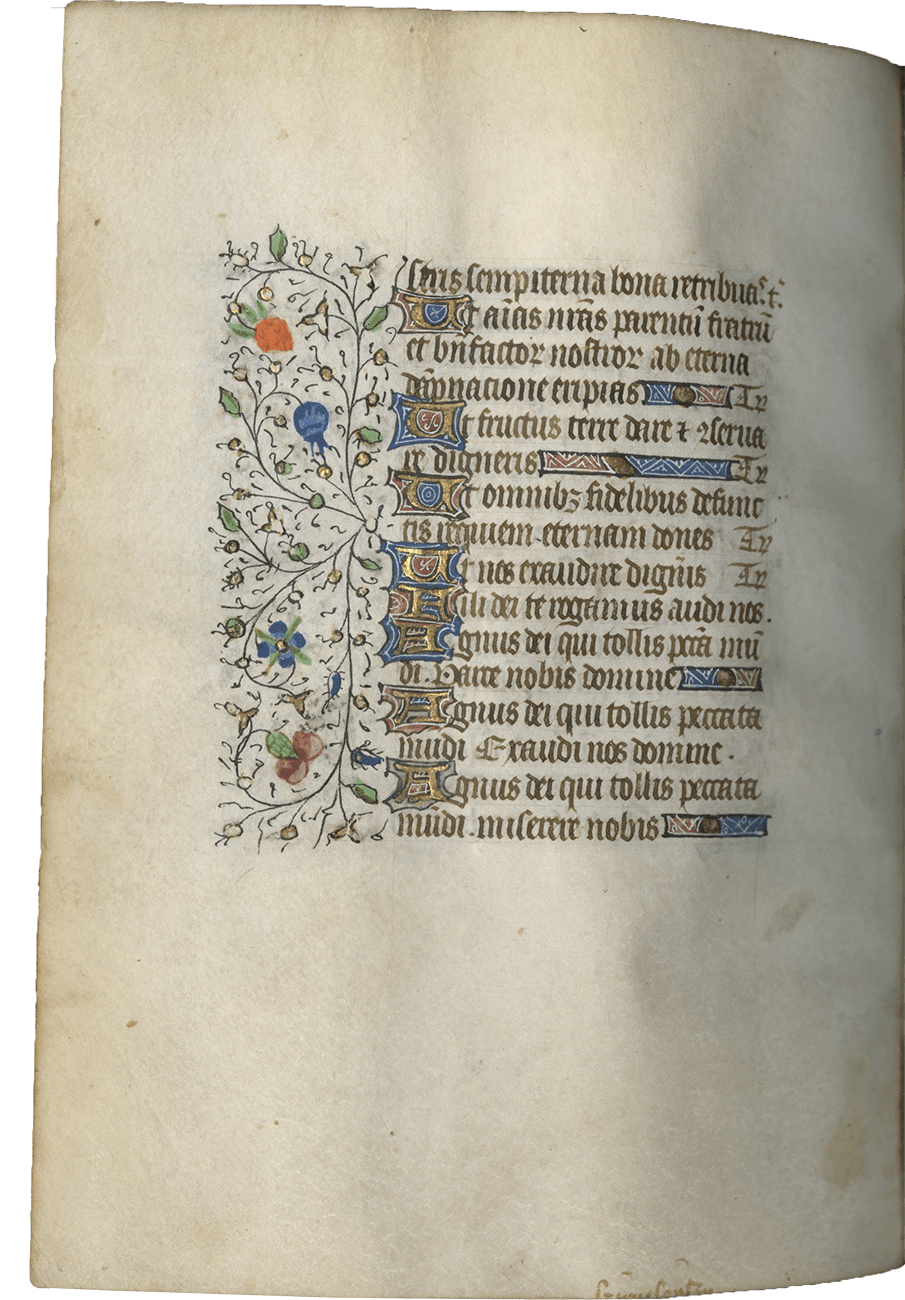 stris sempiterna bona retribuas. t.
Ut aīas nr̄as parentū fratrū
et bn̄factoꝝ nostroꝝ ab eterna
dāpnacione eripias Te ro
Ut fructus terre dare ⁊ ꝯserua
re digneris Te ro
Ut omnibꝫ fidelibus defunc
tis requiem eternam dones Te ro
Ut nos exaudire dignīs Te ro
Fili dei te rogamus audi nos.
Agnus dei qui tollis pctā mū
di. Parce nobis domine
Agnus dei qui tollis peccata
mūdi Exaudi nos domine.
Agnus dei qui tollis peccata
mūdi. miserere nobis